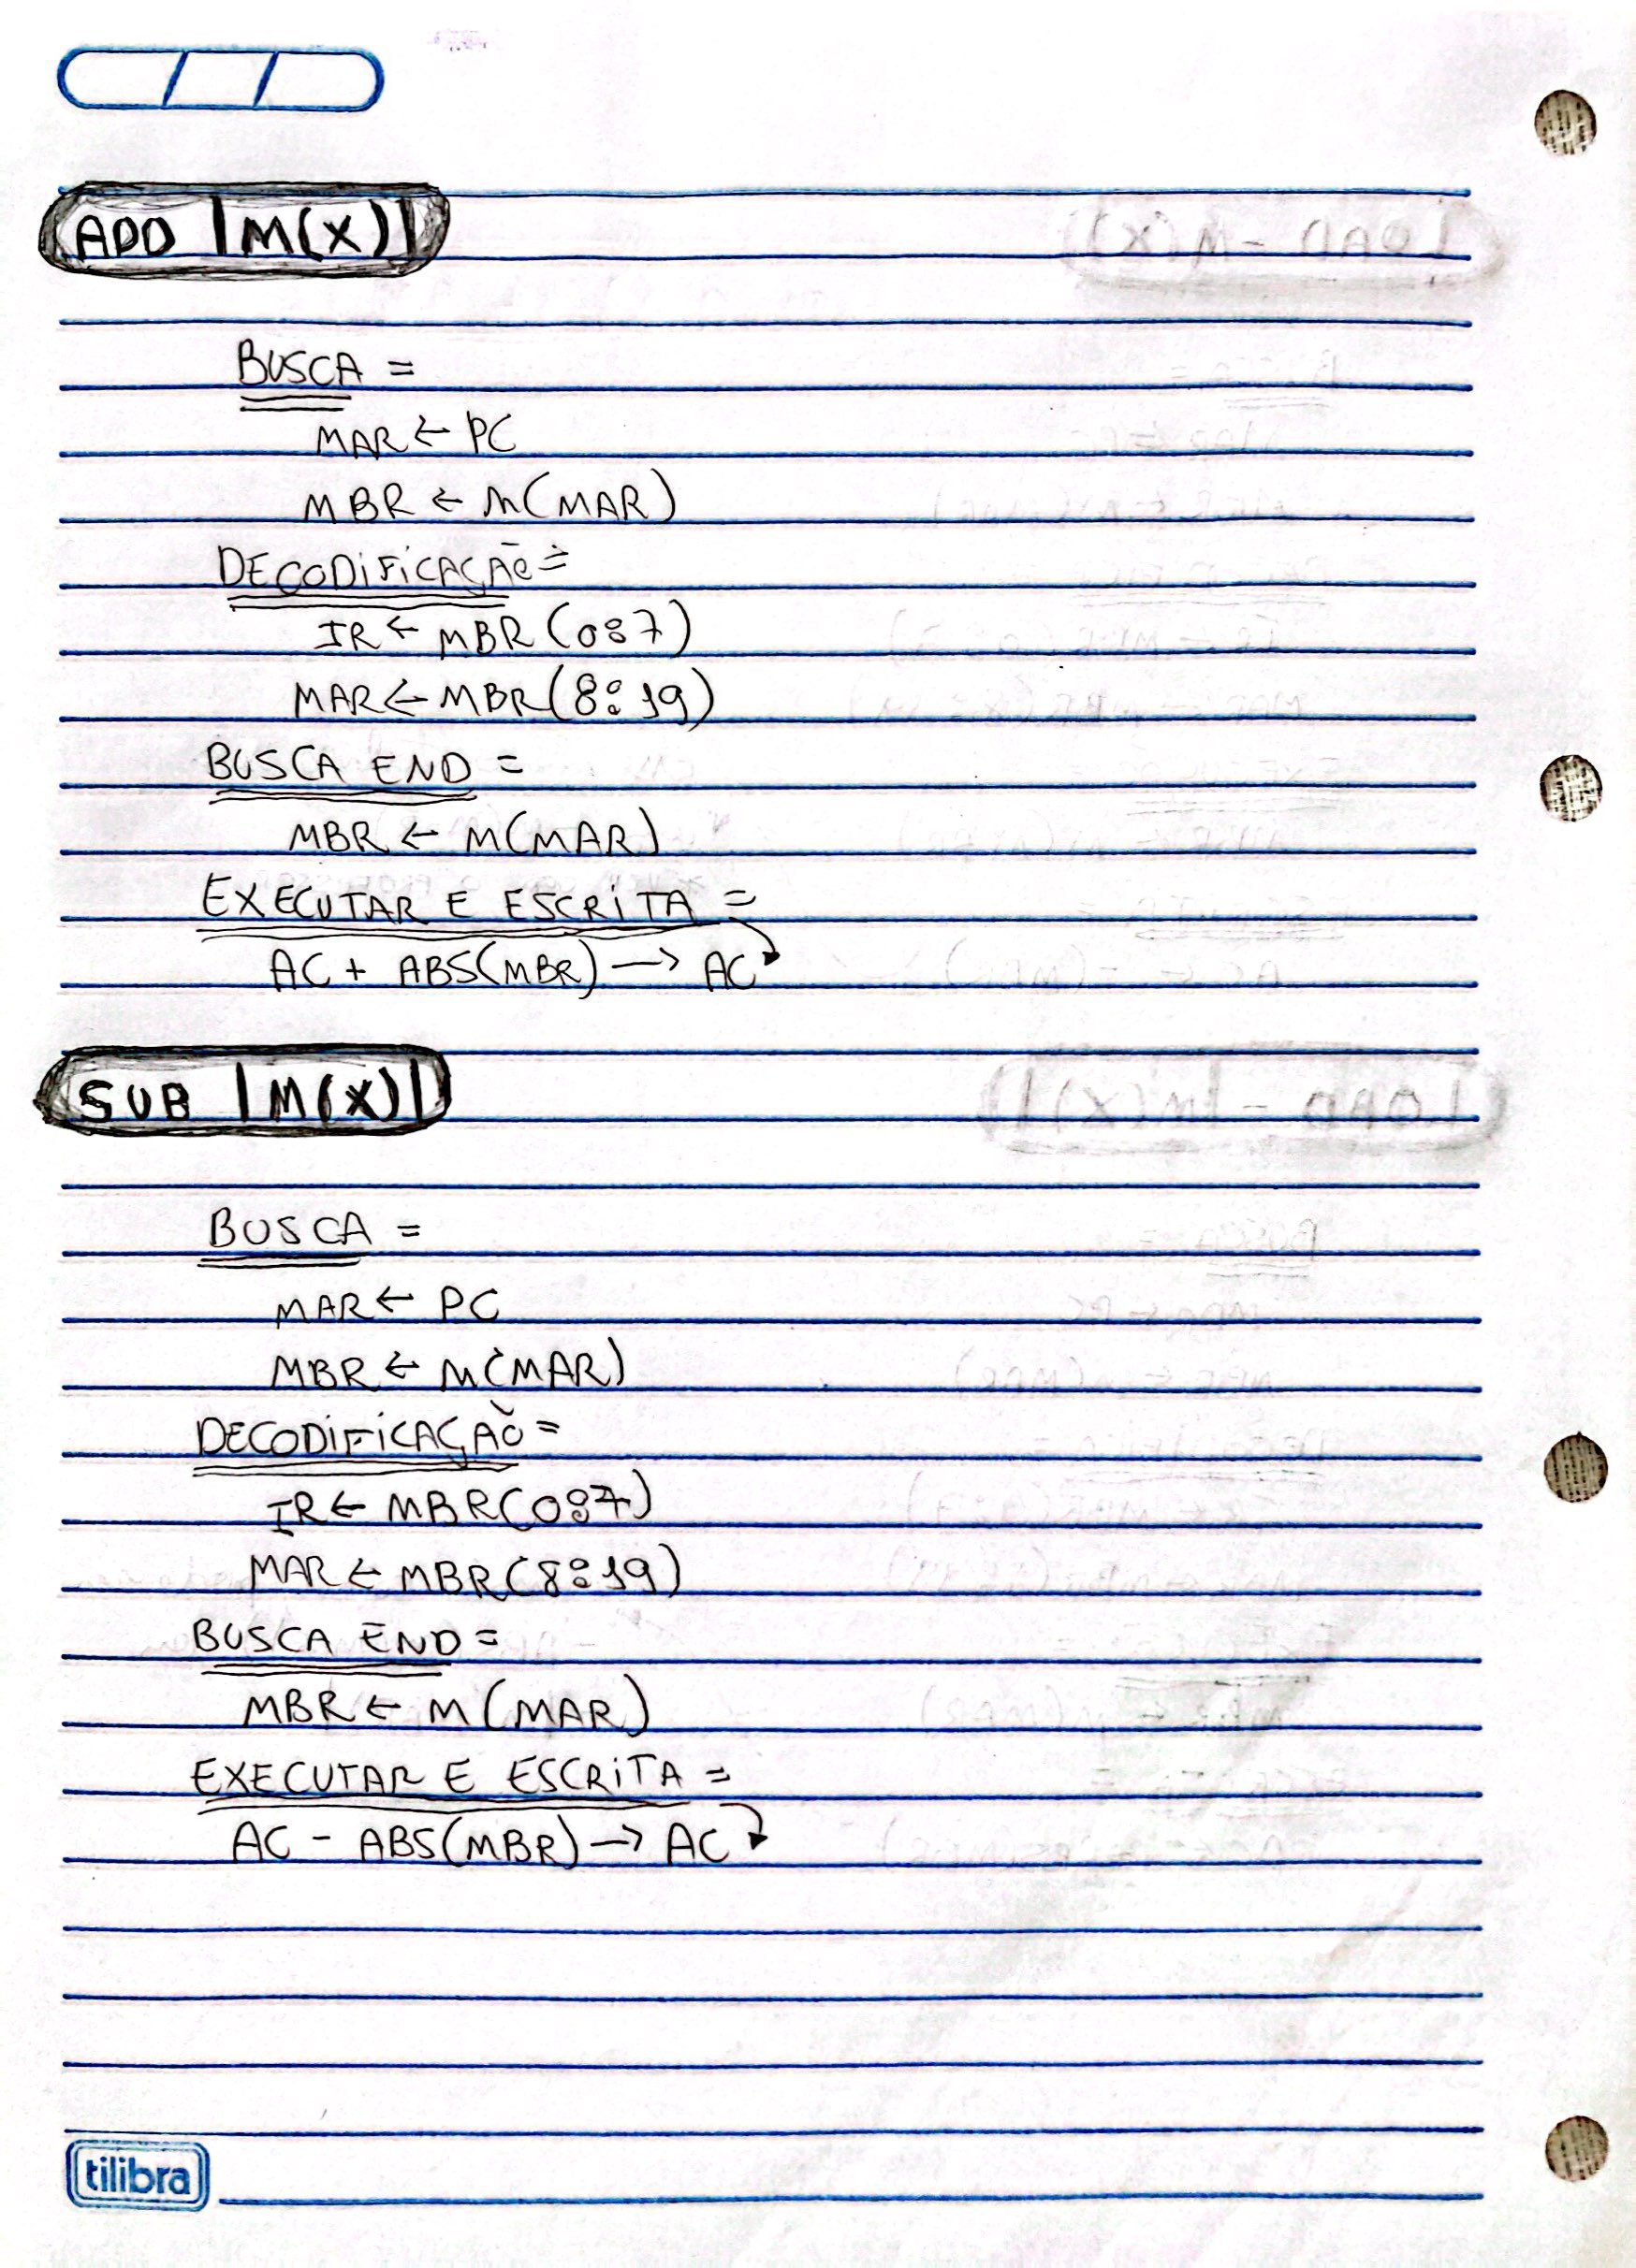 ADD |M(X)|
BUSCA =
MAR ← PC
MBR ← M(MAR)
DECODIFICAÇÃO =
IR ← MBR(0:7)
MAR ← MBR(8:19)
BUSCA END =
MBR ← M(MAR)
EXECUTAR E ESCRITA =
AC + ABS(MBR) → AC
SUB |M(X)|
BUSCA =
MAR ← PC
MBR ← M(MAR)
DECODIFICAÇÃO =
IR ← MBR(0:7)
MAR ← MBR(8:19)
BUSCA END =
MBR ← M(MAR)
EXECUTAR E ESCRITA =
AC - ABS(MBR) → AC
tilibra